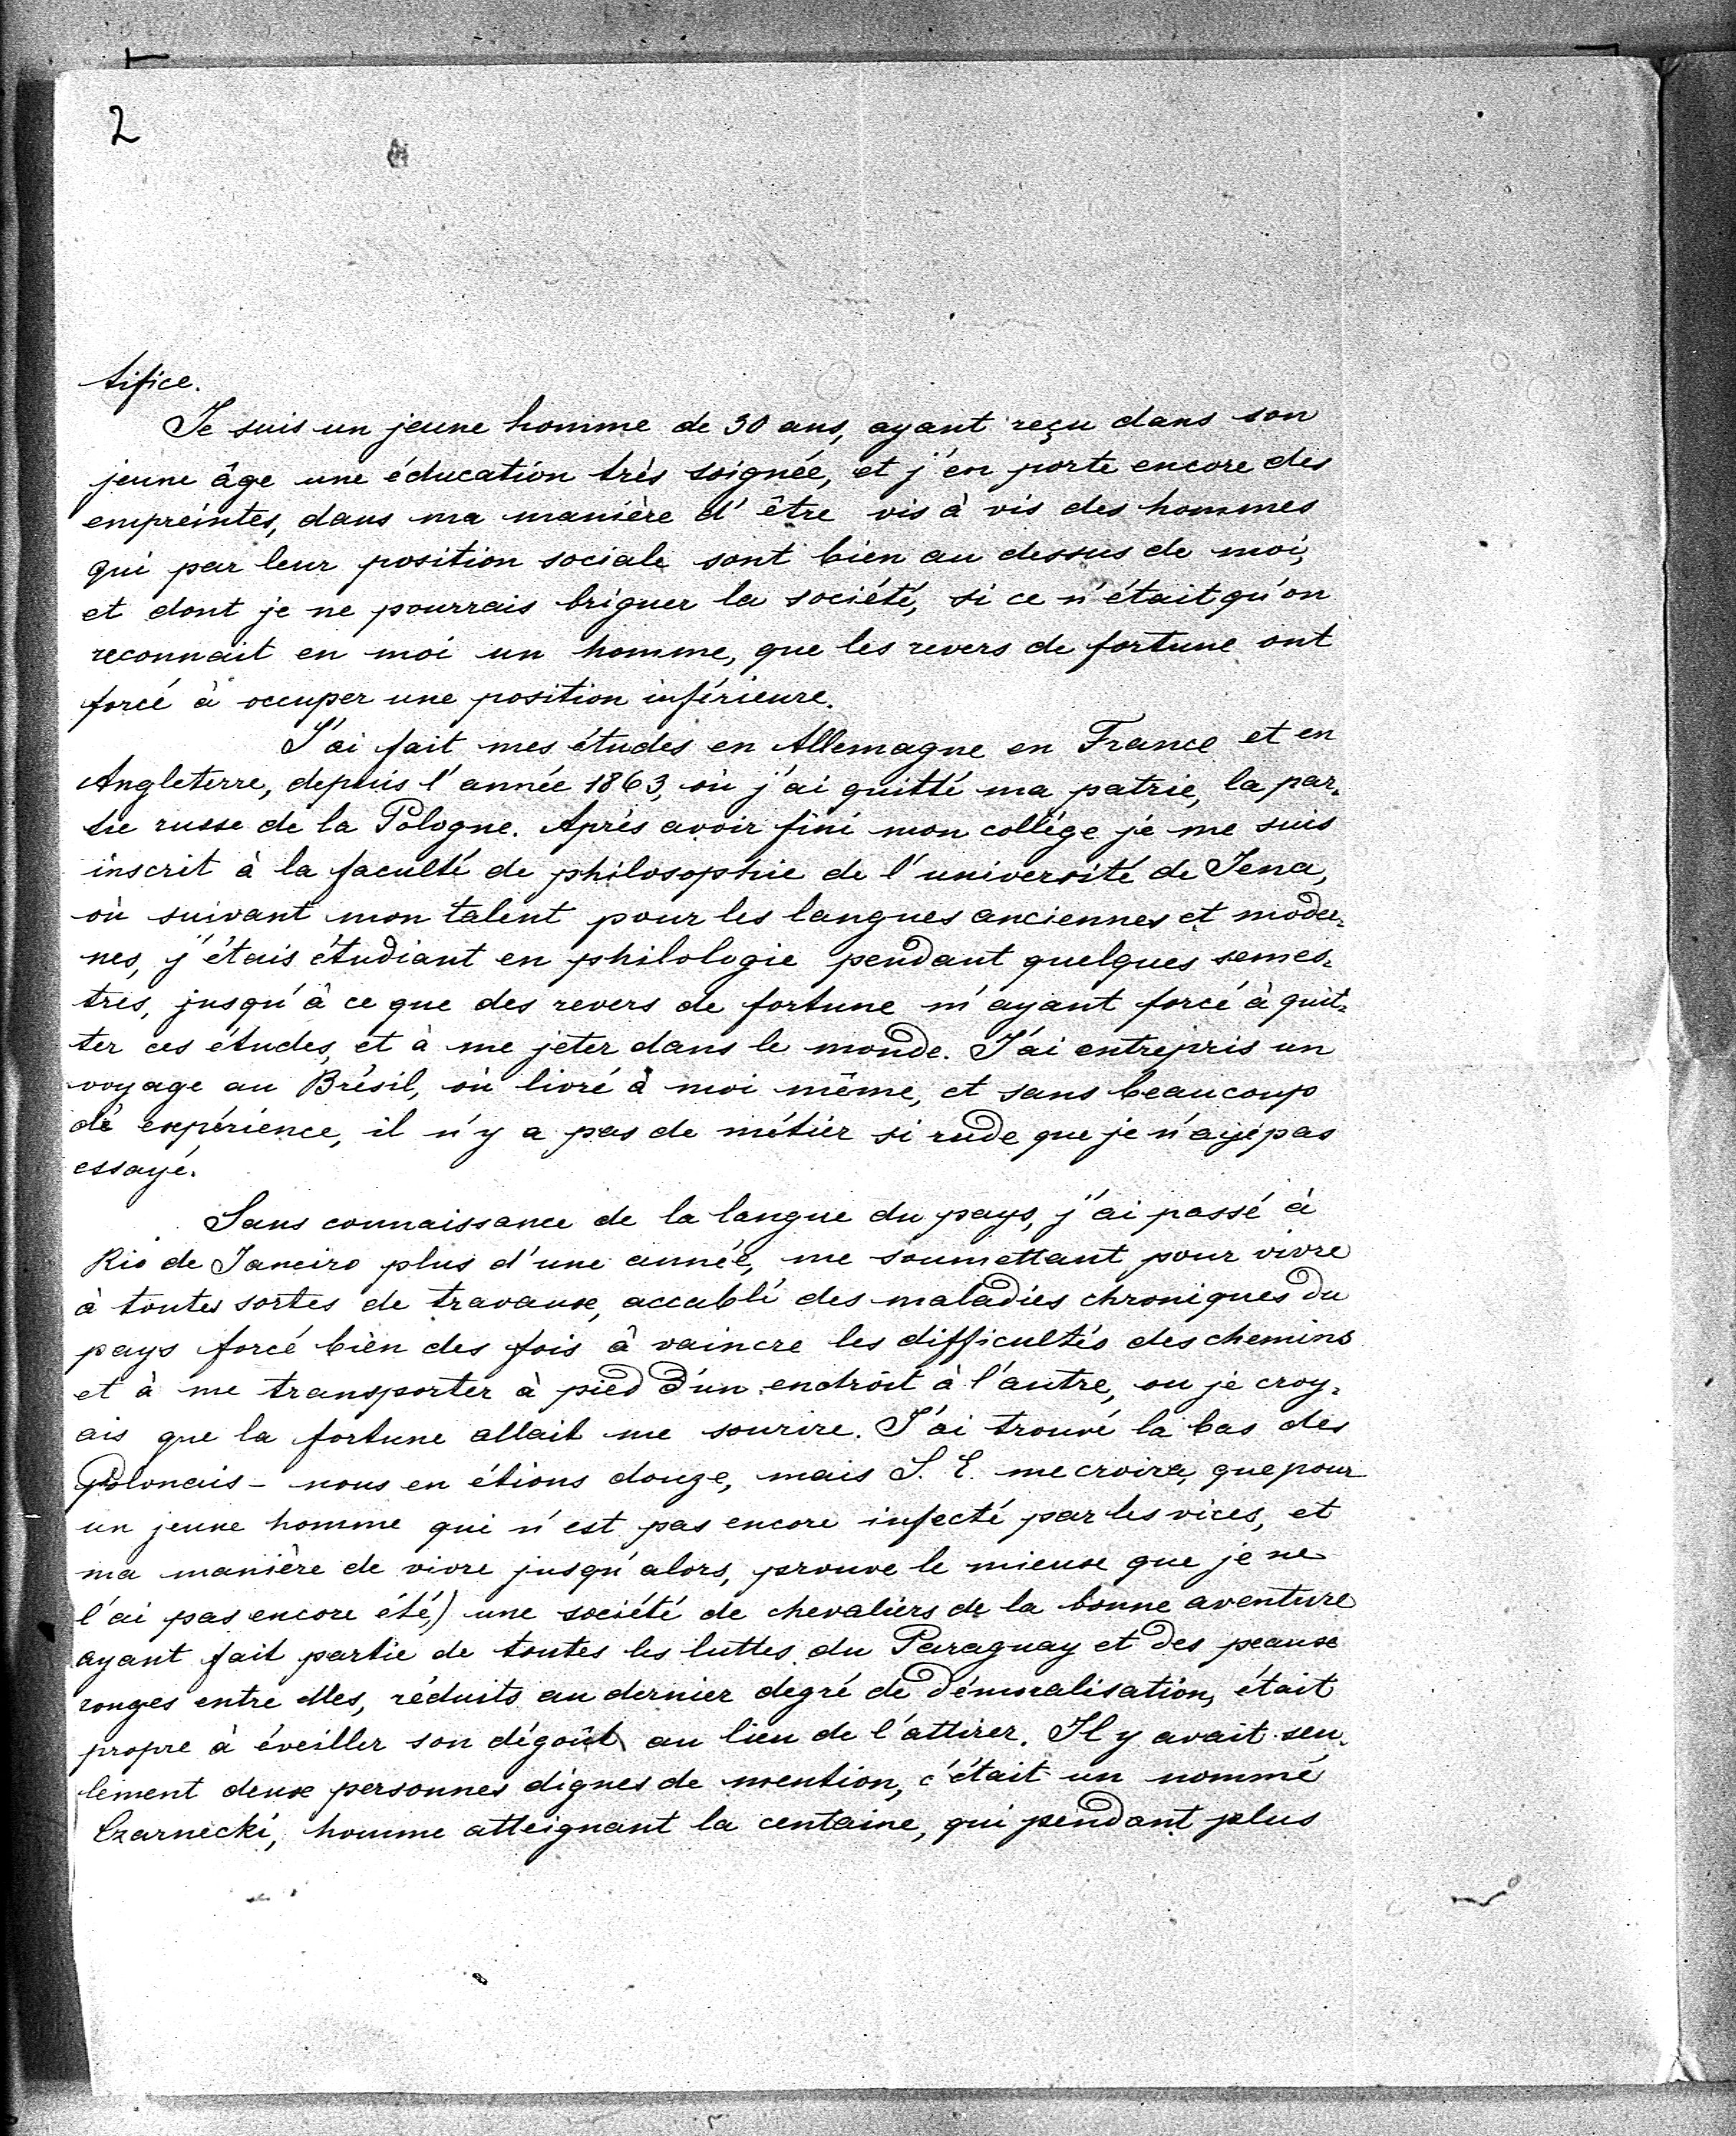 2
tifice.
Je suis un jeune homme de 30 ans, ayant reçu dans son
jeune âge une éducation très soignée, et j'en porte encore des
empreintes, dans ma manière d'être vis à vis des hommes
qui par leur position sociale sont bien au dessus de moi,
et dont je ne pourrais briguer la société, si ce n'était qu'on
reconnait en moi un homme, que les revers de fortune ont
forcé à occuper une position inférieure.
J'ai fait mes études en Allemagne en France et en
Angleterre, depuis l'année 1863, où j'ai quitté ma patrie, la par-
tie russe de la Pologne. Après avoir fini mon collège je me suis
inscrit à la faculté de philosophie de l'université de Jena,
où suivant mon talent pour les langues anciennes et moder-
nes, j'étais étudiant en philologie pendant quelques semes-
tres, jusqu'à ce que des revers de fortune m'ayant forcé à quit-
ter ces études, et à me jeter dans le monde. J'ai entrepris un
voyage au Brésil, où livré à moi même, et sans beaucoup
de expérience, il n'y a pas de métier si rude que je n'aye pas
essayé.
Sans connaissance de la langue du pays, j'ai passé à
Rio de Janeiro plus d'une année, me soumettant pour vivre
à toutes sortes de travaux, accablé des maladies chroniques du
pays forcé bien des fois à vaincre les difficultés des chemins
et à me transporter à pied d'un endroit à l'autre, ou je croy-
ais que la fortune allait me sourire. J'ai trouvé là bas des
Polonais - nous en étions douze, mais S. E. me croira, que pour
un jeune homme qui n'est pas encore infecté par les vices, et
ma manière de vivre jusqu'alors, prouve le mieux que je ne
l'ai pas encore été,) une société de chevaliers de la bonne aventure
ayant fait partie de toutes les luttes du Paraguay et des peaux
rouges entre elles, réduits au dernier degré de démoralisation, était
propre à éveiller son dégoût au lieu de l'attirer. Il y avait seu-
lement deux personnes dignes de mention, c'était un nommé
Czarnecki, homme atteignant la centaine, qui pendant plus